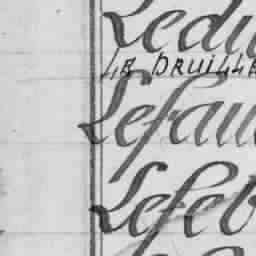 Ledu
LE DRUILLE
Lefau
Lefeb